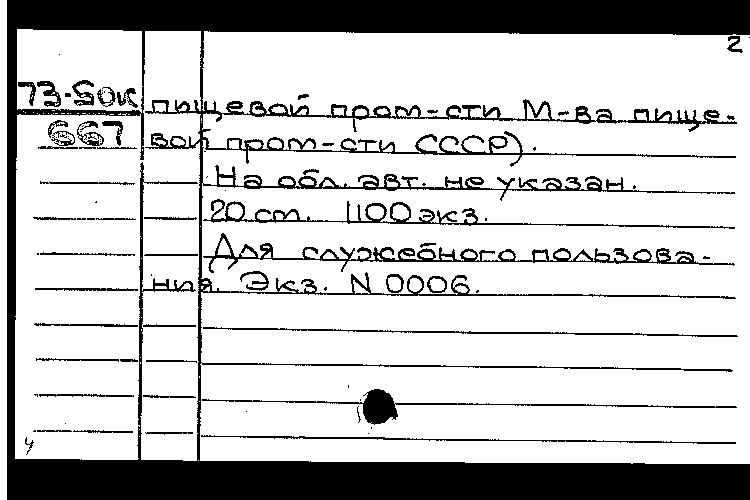 2
73-50к пищевой пром-сти М-ва пище-
667 вой пром-сти СССР).
На обл. авт. не указан.
20 cm. 1100 экз.
Для служебного пользова-
ния. Экз. N 0006.
4